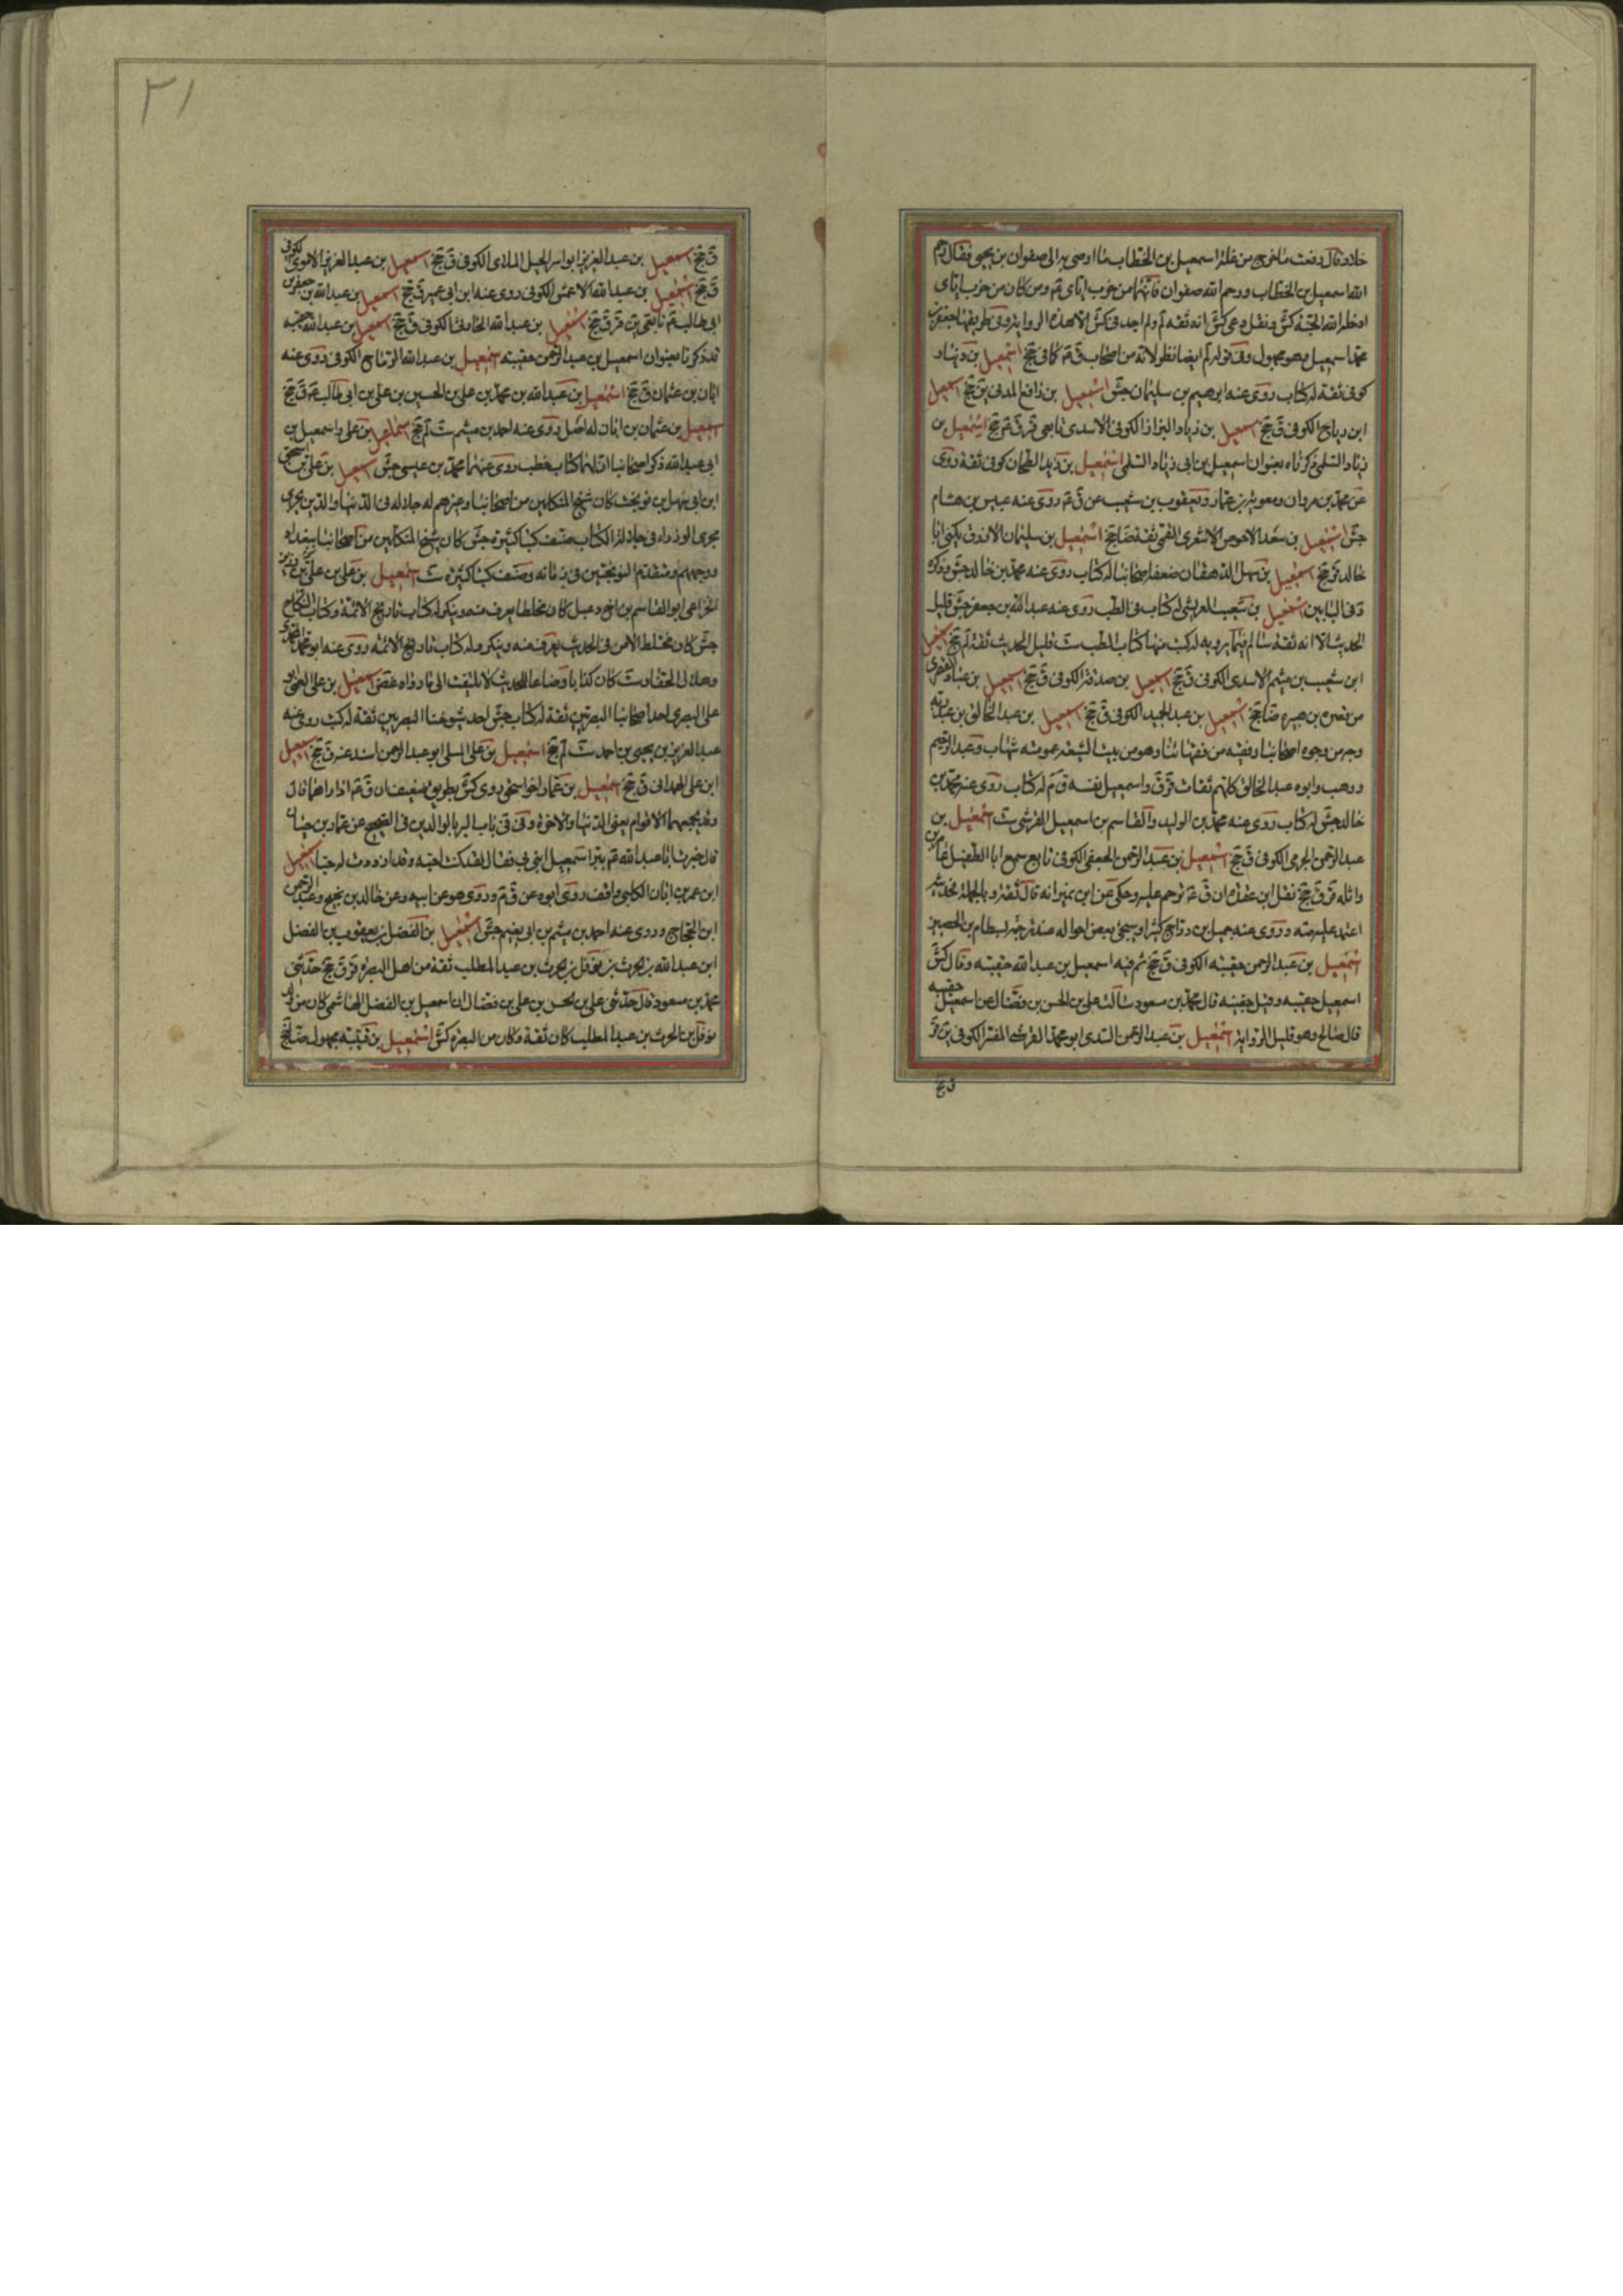 الله اسمعيل بن الخطاب ورحم الله صفوان فانهما من حزب ابائى ع ومن كان من حزب ابائى
محمد اسمعيل وهو مجهول وفى
كوفى ثقة له كتاب روى عنه ابرهيم بن سليمان جش اسمعيل بن رافع المدنى ين جخ اسمعيل
ابن رباح الكوفى ق جخ اسمعيل بن زياد البزاز الكوفى الاسدى تابعى قر ق جخ اسمعيل بن
زياد السلمى ذكرناه بعنوان اسمعيل بن ابى زياد السلمى اسمعيل بن زيد الطحان كوفى ثقة روى
عن محمد بن مروان ومعوية بن عمار ويعقوب بن شعيب عن ق ع روى عنه عبيس بن هشام
جش اسمعيل بن سعد الاحوص الاشعرى القمى ثقة ضا جخ اسمعيل بن سليمان الازرق يكنى ابا
خالد قر جخ اسمعيل بن سهل الدهقان ضعفه اصحابنا له كتاب روى عنه محمد بن خالد جش
اسمعيل بن شعيب العريشى له كتاب فى الطب روى عنه عبدالله بن جعفر جش قليل
الحديث الا انه ثقة سالم فيما يرويه له كتب منها كتاب الطب ست قليل الحديث ثقة لم جخ اسمعيل
ابن شعيب بن ميثم الاسدى الكوفى ق جخ اسمعيل بن صدقة الكوفى ق جخ اسمعيل بن عباد القصرى
من قصر بن هبيره ضا جخ اسمعيل بن عبد الحميد الكوفى ق جخ اسمعيل بن عبد الخالق بن عبد ربه
وجه من وجوه اصحابنا وفقيه من فقهائنا وهو من بيت الشيعة عمومته شهاب وعبد الرحيم
ووهب وابوه عبد الخالق كلهم ثقات قر ق واسمعيل نفسه ق م له كتاب روى عنه محمد بن
خالد جش له كتاب روى عنه محمد بن الوليد والقاسم بن اسمعيل القرشى ست اسمعيل بن
عبد الرحمن الجرمى الكوفى ق جخ اسمعيل بن عبد الرحمن الجعفى الكوفى تابعى سمع ابا الطفيل عامر بن
واثله قر ق جخ نقل ابن عقدة ان ق ع ترحم عليه وحكى عن ابن نمير انه قال ثقة وبالجملة فحديثه
اعتمد عليه صه وروى عنه جميل بن دراج كثيرا وسيجئ بعض احواله عند ترجمة بسطام بن الحصين
اسمعيل بن عبد الرحمن حقيبه الكوفى ق جخ ثم فيه اسمعيل بن عبد الله حقيبه وقال كش
اسمعيل حقيبه وقيل جفينه قال محمد بن مسعود سالت على بن الحسن بن فضال عن اسمعيل حقيبه
قال صالح وهو قليل الرواية اسمعيل بن عبد الرحمن السدى ابو محمد القرشى المفسر الكوفى ين قر
ق جخ
٢١
ق جخ اسمعيل بن عبد العزيز ابو اسرائيل الملائى الكوفى ق جخ اسمعيل بن عبد العزيز الاموى الكوفى
ق جخ اسمعيل بن عبدالله الاعمش الكوفى روى عنه ابن ابى عمير ق جخ اسمعيل بن عبدالله بن جعفر بن
ابى طالب ع تابعى ين قر ق جخ اسمعيل بن عبدالله الحارثى الكوفى ق جخ اسمعيل بن عبدالله حقيبه
قد ذكرنا بعنوان اسمعيل بن عبد الرحمن حقيبه اسمعيل بن عبدالله الرماح الكوفى روى عنه
ابان بن عثمان ق جخ اسمعيل بن عبدالله بن محمد بن على بن الحسين بن على بن ابى طالب ع ق جخ
اسمعيل بن عثمان بن ابان له اصل روى عنه احمد بن ميثم ست لم جخ اسمعيل بن على واسمعيل بن
ابى عبدالله ذكر اصحابنا ان لهما كتاب خطب روى عنهما محمد بن عيسى جش اسمعيل بن على بن اسحق
ابن ابى سهل بن نوبخت كان شيخ المتكلمين من اصحابنا وغيرهم له جلاله فى الدنيا والدين يجرى
مجرى الوزراء فى جلالة الكتاب صنف كتبا كثيرة جش كان شيخ المتكلمين من اصحابنا ببغداد
ووجههم ومتقدم النوبختيين فى زمانه وصنف كتبا كثيره ست اسمعيل بن على بن على بن رزين
الخزاعى ابو القاسم بن اخى دعبل كان مختلطا يعرف منه وينكر له كتاب تاريخ الائمة وكتاب النكاح
جش كان مختلط الامر فى الحديث يعرف منه وينكر وله كتاب تاريخ الائمه روى عنه ابو
كان كذابا وضاعا للحديث لا يلتفت الى ما رواه غض اسمعيل بن على العمى ابو
على البصرى احد اصحابنا البصريين ثقة له كتاب جش احد شيوخنا البصريين ثقة له كتب روى عنه
عبد العزيز بن يحيى بن احمد ست لم جخ اسمعيل بن على المسلى ابو عبد الرحمن اسند عنه ق جخ اسمعيل
ابن على الهمدانى ق جخ اسمعيل بن عمار اخو اسحق روى كش بطريق ضعيف ان ق ع اذا راهما قال
وقد يجمعهما لاقوام يعنى الدنيا والاخرة وفى فى باب البر بالوالدين فى الصحيح عن عمار بن حيان
قال خبرت ابا عبدالله ع ببر اسمعيل ابنى بى فقال لقد كنت احبه وقد ازددت له حبا اسمعيل
ابن عمر بن ابان الكلبى واقف روى ابوه عن ق م وروى هو عن ابيه وعن خالد بن نجيح وعبد الرحمن
ابن الحجاج وروى عنه احمد بن ميثم بن ابى نعيم جش اسمعيل بن الفضل بن يعقوب بن الفضل
ابن عبدالله بن الحرث بن نوفل بن الحرث بن عبد المطلب ثقة من اهل البصره قر ق جخ حدثنى
محمد بن مسعود قال حدثنى على بن الحسن بن على بن فضال ان اسمعيل بن الفضل الهاشمى كان من ولد
نوفل بن الحرث بن عبد المطلب كان ثقة وكان من البصره كش اسمعيل بن قتيبه مجهول ضا جخ